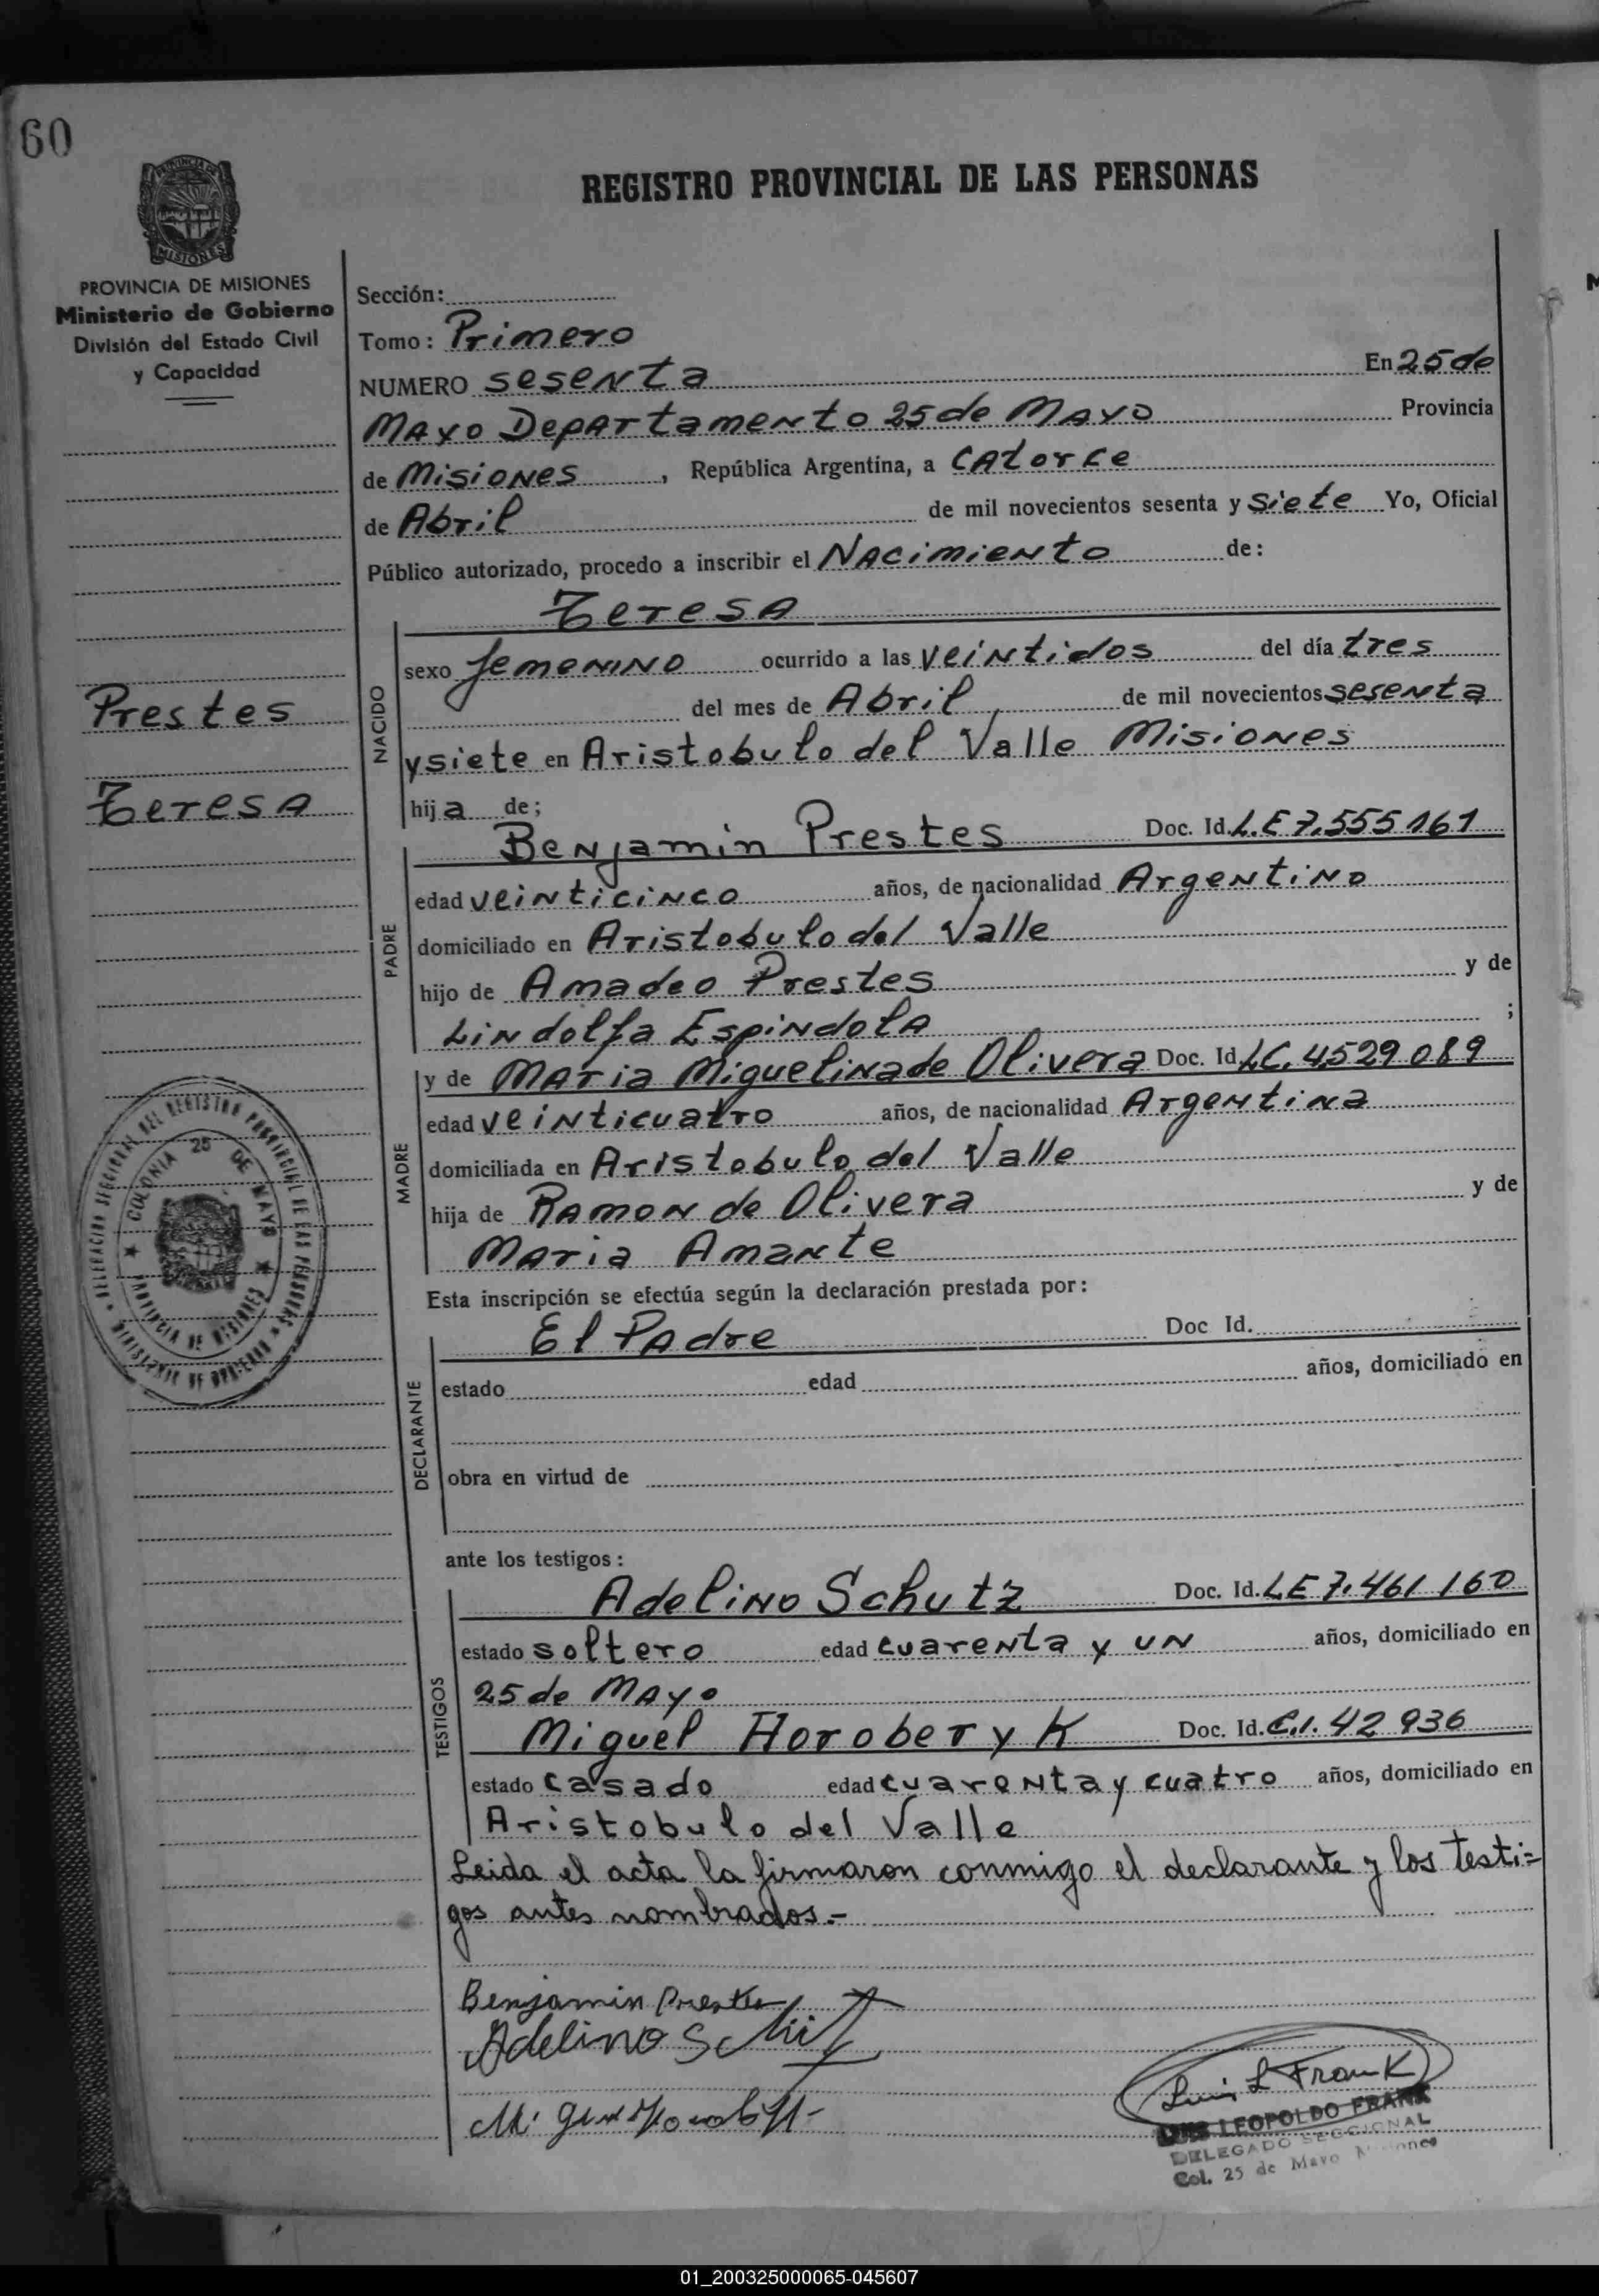 60
PROVINCIA DE
MISIONES
REGISTRO PROVINCIAL DE LAS PERSONAS
PROVINCIA DE MISIONES
Ministerio de Gobierno
División del Estado Civil
y Capacidad
Sección:
Tomo: Primero
NUMERO sesenta En 25 de
Mayo Departamento 25 de Mayo Provincia
de Misiones, República Argentina, a Catorce
de Abril de mil novecientos sesenta y siete Yo, Oficial
Público autorizado, procedo a inscribir el Nacimiento de:
Teresa
sexo femenino ocurrido a las veintidos del día tres
del mes de Abril de mil novecientos sesenta
y siete en Aristobulo del Valle Misiones
hija de;
NACIDO
Prestes
Teresa
Benjamin Prestes Doc. Id. L.E 7.555 161
edad veinticinco años, de nacionalidad Argentino
domiciliado en Aristobulo del Valle
hijo de Amadeo Prestes y de
Lindolfa Espindola ;
PADRE
y de Maria Miguelina de Olivera Doc. Id. LC. 4529 089
edad veinticuatro años, de nacionalidad Argentina
domiciliada en Aristobulo del Valle
hija de Ramon de Olivera y de
Maria Amante
MADRE
DELEGACION SECCIONAL DEL REGISTRO PROVINCIAL DE LAS PERSONAS
MINISTERIO DE GOBIERNO
COLONIA 25 DE MAYO
PROVINCIA DE MISIONES
Esta inscripción se efectúa según la declaración prestada por:
El Padre Doc Id.
estado edad años, domiciliado en
obra en virtud de
DECLARANTE
ante los testigos:
Adelino Schutz Doc. Id. LE 7.461 160
estado soltero edad cuarenta y un años, domiciliado en
25 de Mayo
Miguel Horoberyk Doc. Id. C.I. 42 936
estado casado edad cuarenta y cuatro años, domiciliado en
Aristobulo del Valle
TESTIGOS
Leida el acta la firmaron conmigo el declarante y los testi=
gos antes nombrados.-
Benjamin Prestes
Adelino
Luis L Frank
LUIS LEOPOLDO FRANK
DELEGADO SECCIONAL
Col. 25 de Mayo Misiones
01_200325000065-045607